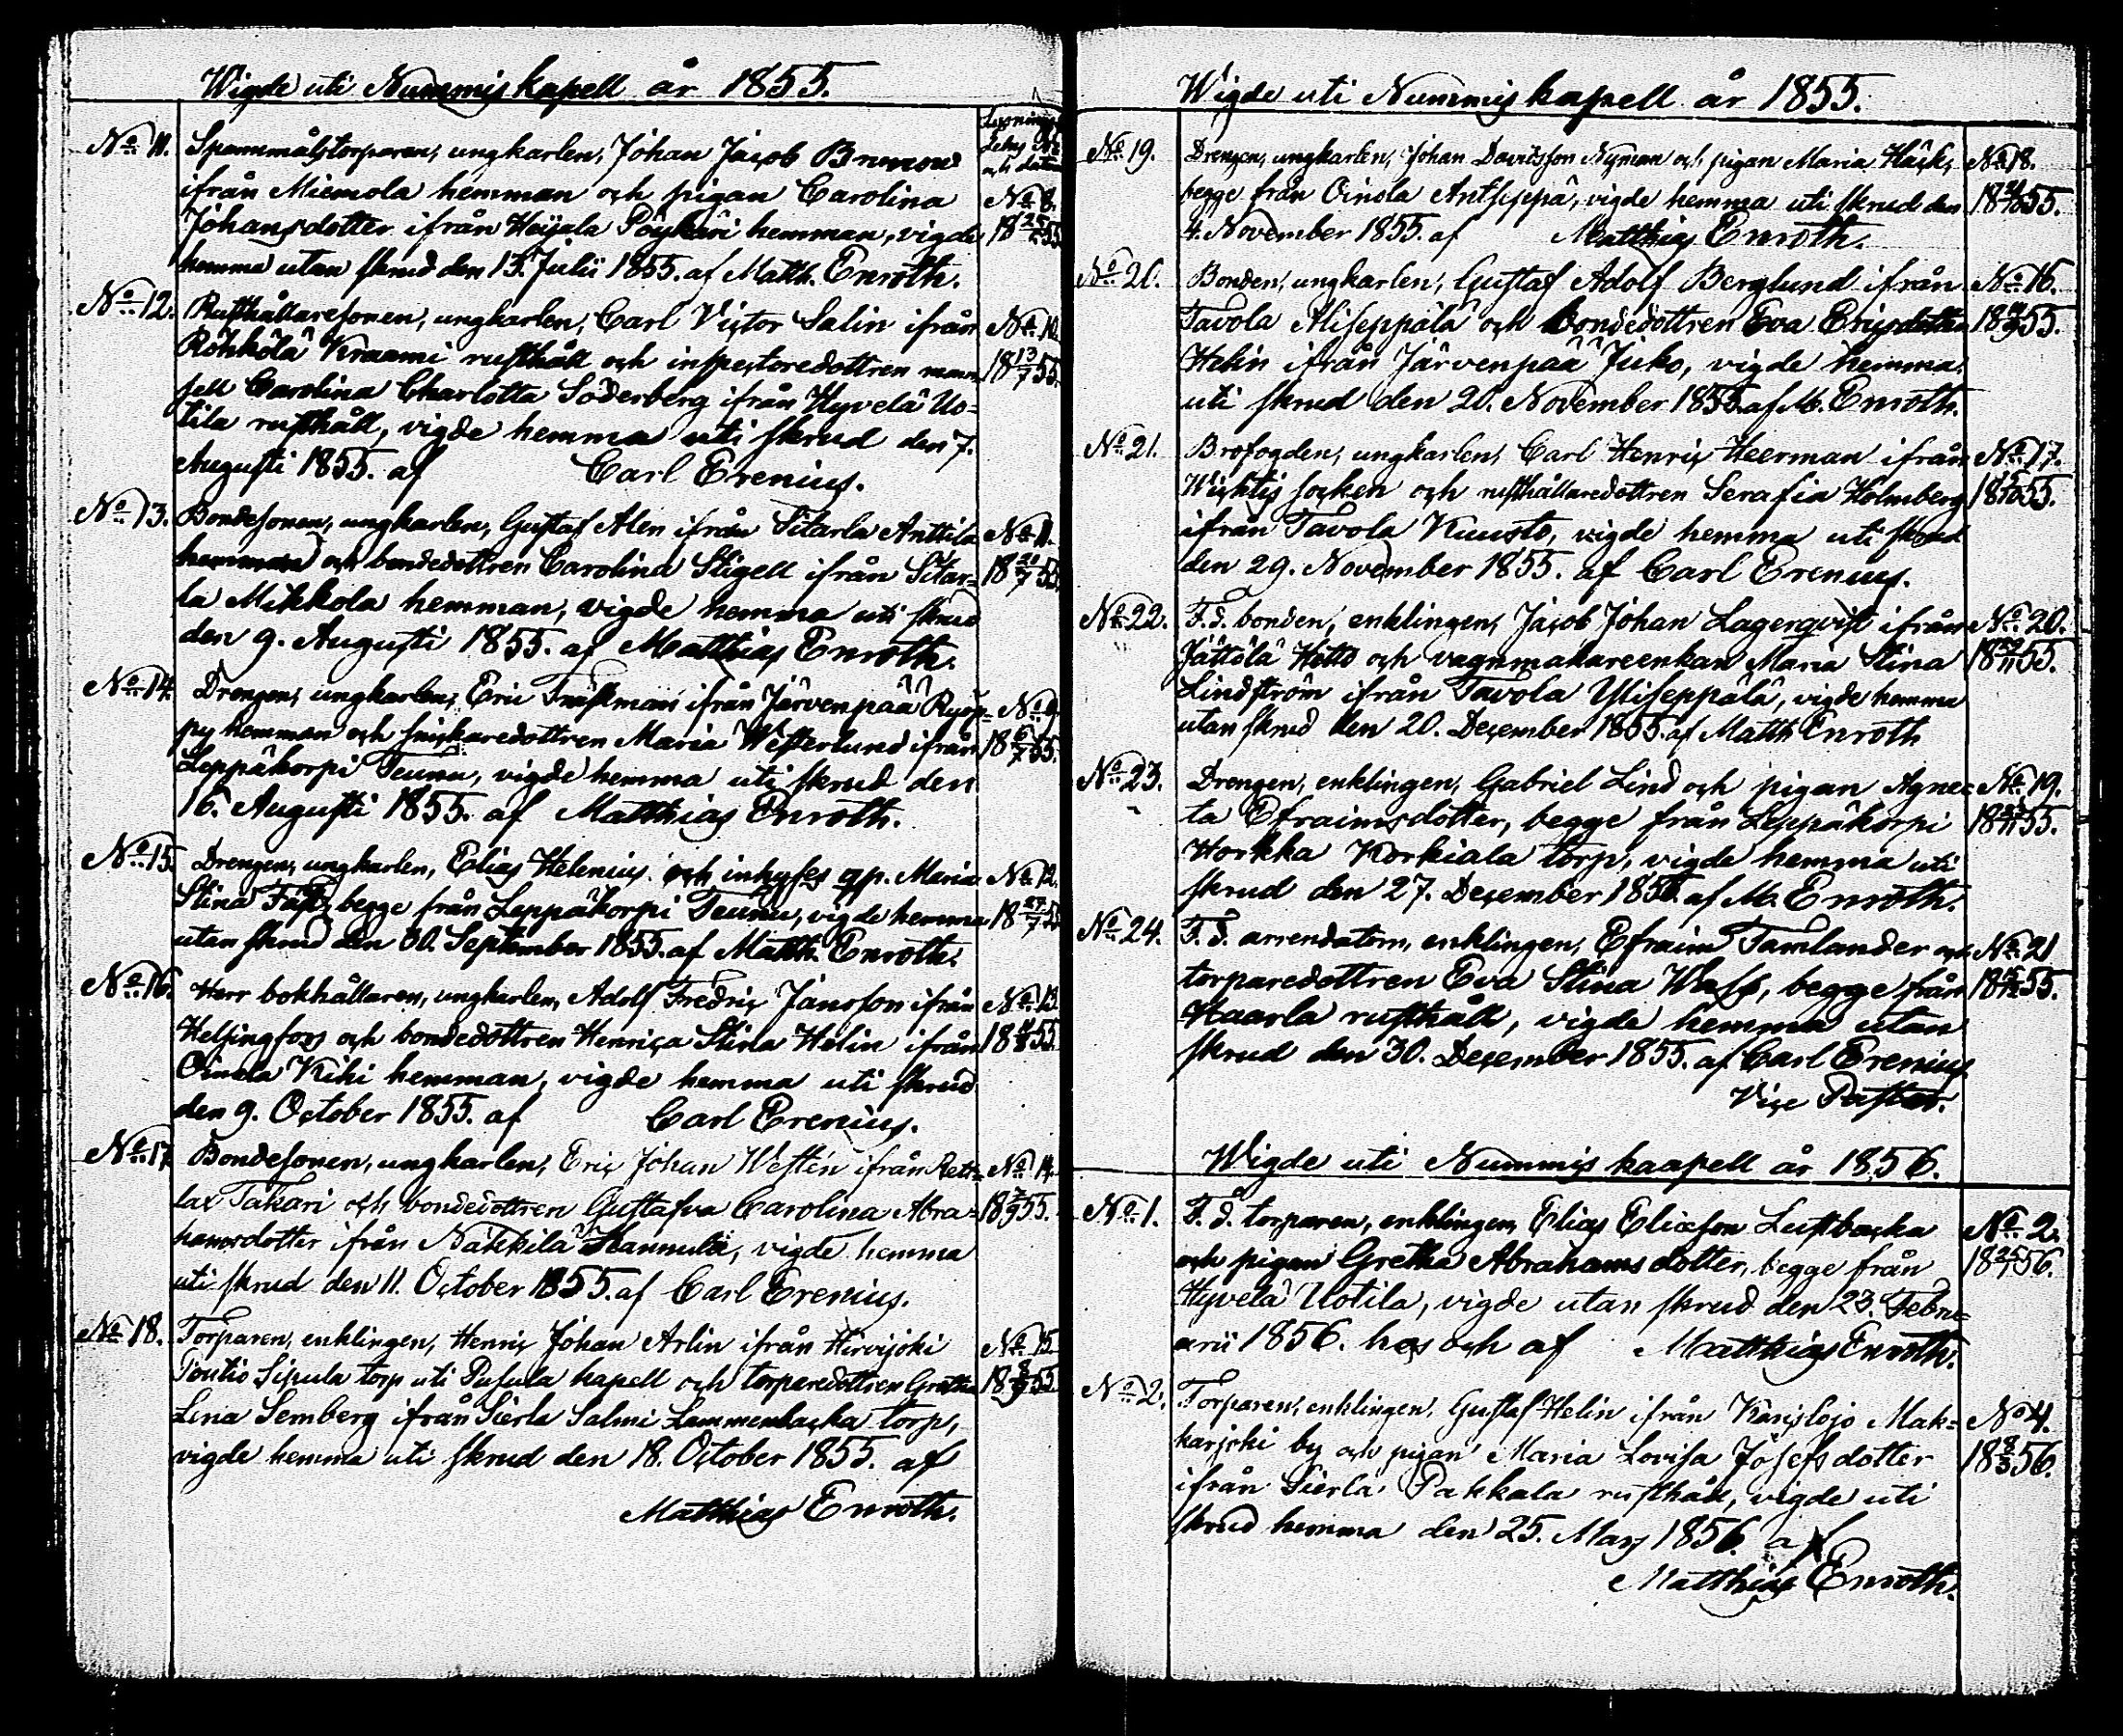 Wigde uti Nummis kapell år 1855.
Lysnings
och datum
No 11. Spannmålstorparen, ungkarlen, Johan Jacob
ifrån Miemola hemman och pigan Carolina No 8.
Johansdotter ifrån Heijala Pöykäri hemman, vigde 18 25/5 55
hemma utan skrud den 13. Julii 1855. af Matth. Enroth.
No 12. Rusthållaresonen, ungkarlen, Carl Victor Salin ifrån No 10.
Röhkölä Kraami rusthåll och inspectoredottren mam- 18 13/7 55.
sell Carolina Charlotta Söderberg ifrån Hyvelä Uo-
tila rusthåll, vigde hemma uti skrud den 7.
Augusti 1855. af Carl Erenius.
No 13. Bondesonen, ungkarlen, Gustaf Alen ifrån Sitarla Anttila No 11.
hemman och bondedottren Carolina Stigell ifrån Sitar- 18 20/7 55
la Mikkola hemman, vigde hemma uti skrud
den 9. Augusti 1855. af Matthias Enroth.
No 14. Drengen, ungkarlen, Eric Träskman ifrån Järvenpää Ryöp- No 9.
py hemman och snickaredottren Maria Westerlund ifrån 18 6/7 55.
Leppäkorpi Teunu, vigde hemma uti skrud den
16. Augusti 1855. af Matthias Enroth.
No 15. Drengen, ungkarlen, Elias Helenius och inhyses qp. Maria No 12.
Stina begge från Leppäkorpi Teunu, vigde hemma 18 27/7 55
utan skrud den 30. September 1855. af Matth. Enroth.
No 16. Herr bokhållaren, ungkarlen, Adolf Fredric Jansson ifrån No 13.
Helsingfors och bondedottren Henrica Stina Helin ifrån 18 55.
Oinola Kihi hemman, vigde hemma uti skrud
den 9. October 1855. af Carl Erenius.
No 17. Bondesonen, ungkarlen, Eric Johan Westin ifrån Rett- No 14.
lax Takari och bondedottren Gustafva Carolina Abra- 18 7/9 55.
hamsdotter ifrån Näkkilä Hannula, vigde hemma
uti skrud den 11. October 1855. af Carl Erenius.
No 18. Torparen, enklingen, Henric Johan Arlin ifrån Hirvijoki No 15.
Pontio Sipula torp uti Pusula kapell och torparedottren Gretha 18 8/9 55.
Lena Semberg ifrån Sierla Salmi Lammenbacka torp,
vigde hemma uti skrud den 18. October 1855. af
Matthias Enroth.
Wigde uti Nummis kapell år 1855.
No 19. Drengen, ungkarlen, Johan Davidsson Nyman och pigan Maria Häck, No 18.
begge från Oinola Antseppä, vigde hemma uti skrud den 18 55.
4. November 1855. af Matthias Enroth.
No 20. Bonden, ungkarlen, Gustaf Adolf Berglund ifrån No 16.
Tavola Aliseppälä och bondedottren Eva Ericsdotter 18 55.
Helin ifrån Järvenpää Juko, vigde hemma
uti skrud den 20. November 1855. af M. Enroth.
No 21. Brofogden, ungkarlen, Carl Henric Heerman ifrån No 17.
Wichtis socken och rusthållaredottren Serafia Holmberg 18 55.
ifrån Tavola Kuusto, vigde hemma uti skrud
den 29. November 1855. af Carl Erenius.
No 22. F.d. bonden, enklingen, Jacob Johan Lagerqvist ifrån No 20.
Jättölä Hötö och vagnmakareenkan Maria Stina 18 55.
Lindström ifrån Tavola Yliseppälä, vigde hemma
utan skrud den 20. December 1855. af Matth Enroth
No 23. Drengen, enklingen, Gabriel Lind och pigan Agne- No 19.
ta Efraimsdotter, begge från Leppäkorpi 18 55.
Horkka Korkiala torp, vigde hemma uti
skrud den 27. December 1855. af M. Enroth.
No 24. F.d. arrendatorn, enklingen, Efraim Tamlander och No 21
torparedottren Eva Stina Wass, begge från 18 55.
Haarla rusthåll, vigde hemma utan
skrud den 30. December 1855. af Carl Erenius
Vice Pastor.
Wigde uti Nummis kaapell år 1856.
No 1. F.d. torparen, enklingen, Elias Eliasson Luftbacka No 2.
och pigan Gretha Abrahamsdotter, begge från 18 25/1 56.
Hyvelä Uotila, vigde utan skrud den 23. Febru-
arii 1856. hos och af Matthias Enroth.
No 2. Torparen, enklingen, Gustaf Helin ifrån Karislojo Mak- No 4.
karjoki by och pigan Maria Lovisa Josefsdotter 18 8/3 56.
ifrån Sierla Pakkala rusthåll, vigde uti
skrud hemma den 25. Mars 1856. af
Matthias Enroth.